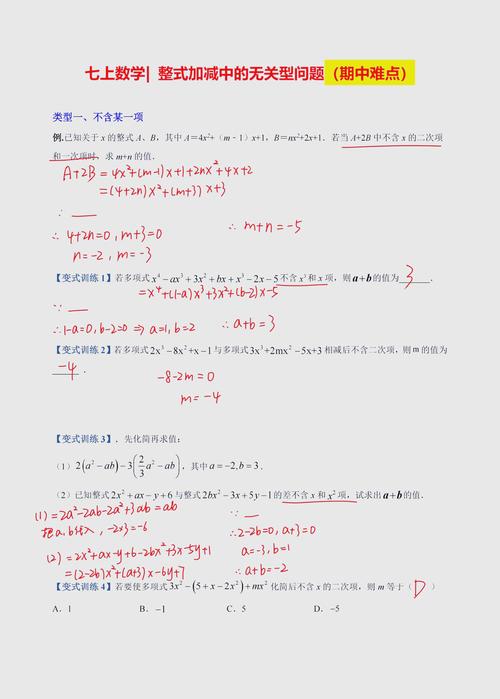 七上数学| 整式加减中的无关型问题（期中难点）
类型一、不含某一项
例.已知关于x的整式A、B，其中A=4x²+（m﹣1）x+1，B=nx²+2x+1．若当A+2B中不含x的二次项
和一次项时，求m+n的值．
A+2B = 4x²+(m-1)x+1+2nx²+4x+2
= (4+2n)x²+(m+3)x+3
∵ __
∴ 4+2n=0, m+3=0 ∴ m+n=-5
n=-2, m=-3
【变式训练1】若多项式x⁴-ax³+3x²+bx+x³-2x-5不含x³和x项，则a+b的值为 3 ．
=x⁴+(1-a)x³+3x²+(b-2)x-5
∵ __
∴1-a=0, b-2=0 ⇒ a=1, b=2 ∴a+b=3
【变式训练2】若多项式2x³-8x²+x-1与多项式3x³+2mx²-5x+3相减后不含二次项，则m的值为
-4 ．
-8-2m=0
m=-4
【变式训练3】．先化简再求值：
（1）2(a²-ab)-3(2/3a²-ab)，其中a=-2,b=3．
（2）已知整式2x²+ax-y+6与整式2bx²-3x+5y-1的差不含x和x²项，试求出a+b的值．
(1) = 2a²-2ab-2a²+3ab=ab ∵ __
把a,b代入, -2×3=-6 ∴2-2b=0, a+3=0
(2) = 2x²+ax-y+6-2bx²+3x-5y+1 a=-3, b=1
= (2-2b)x²+(a+3)x-6y+7 ∴a+b=-2
【变式训练4】若要使多项式3x²-(5+x-2x²)+mx²化简后不含x的二次项，则m等于（ D ）
A．1 B．-1 C．5 D．-5